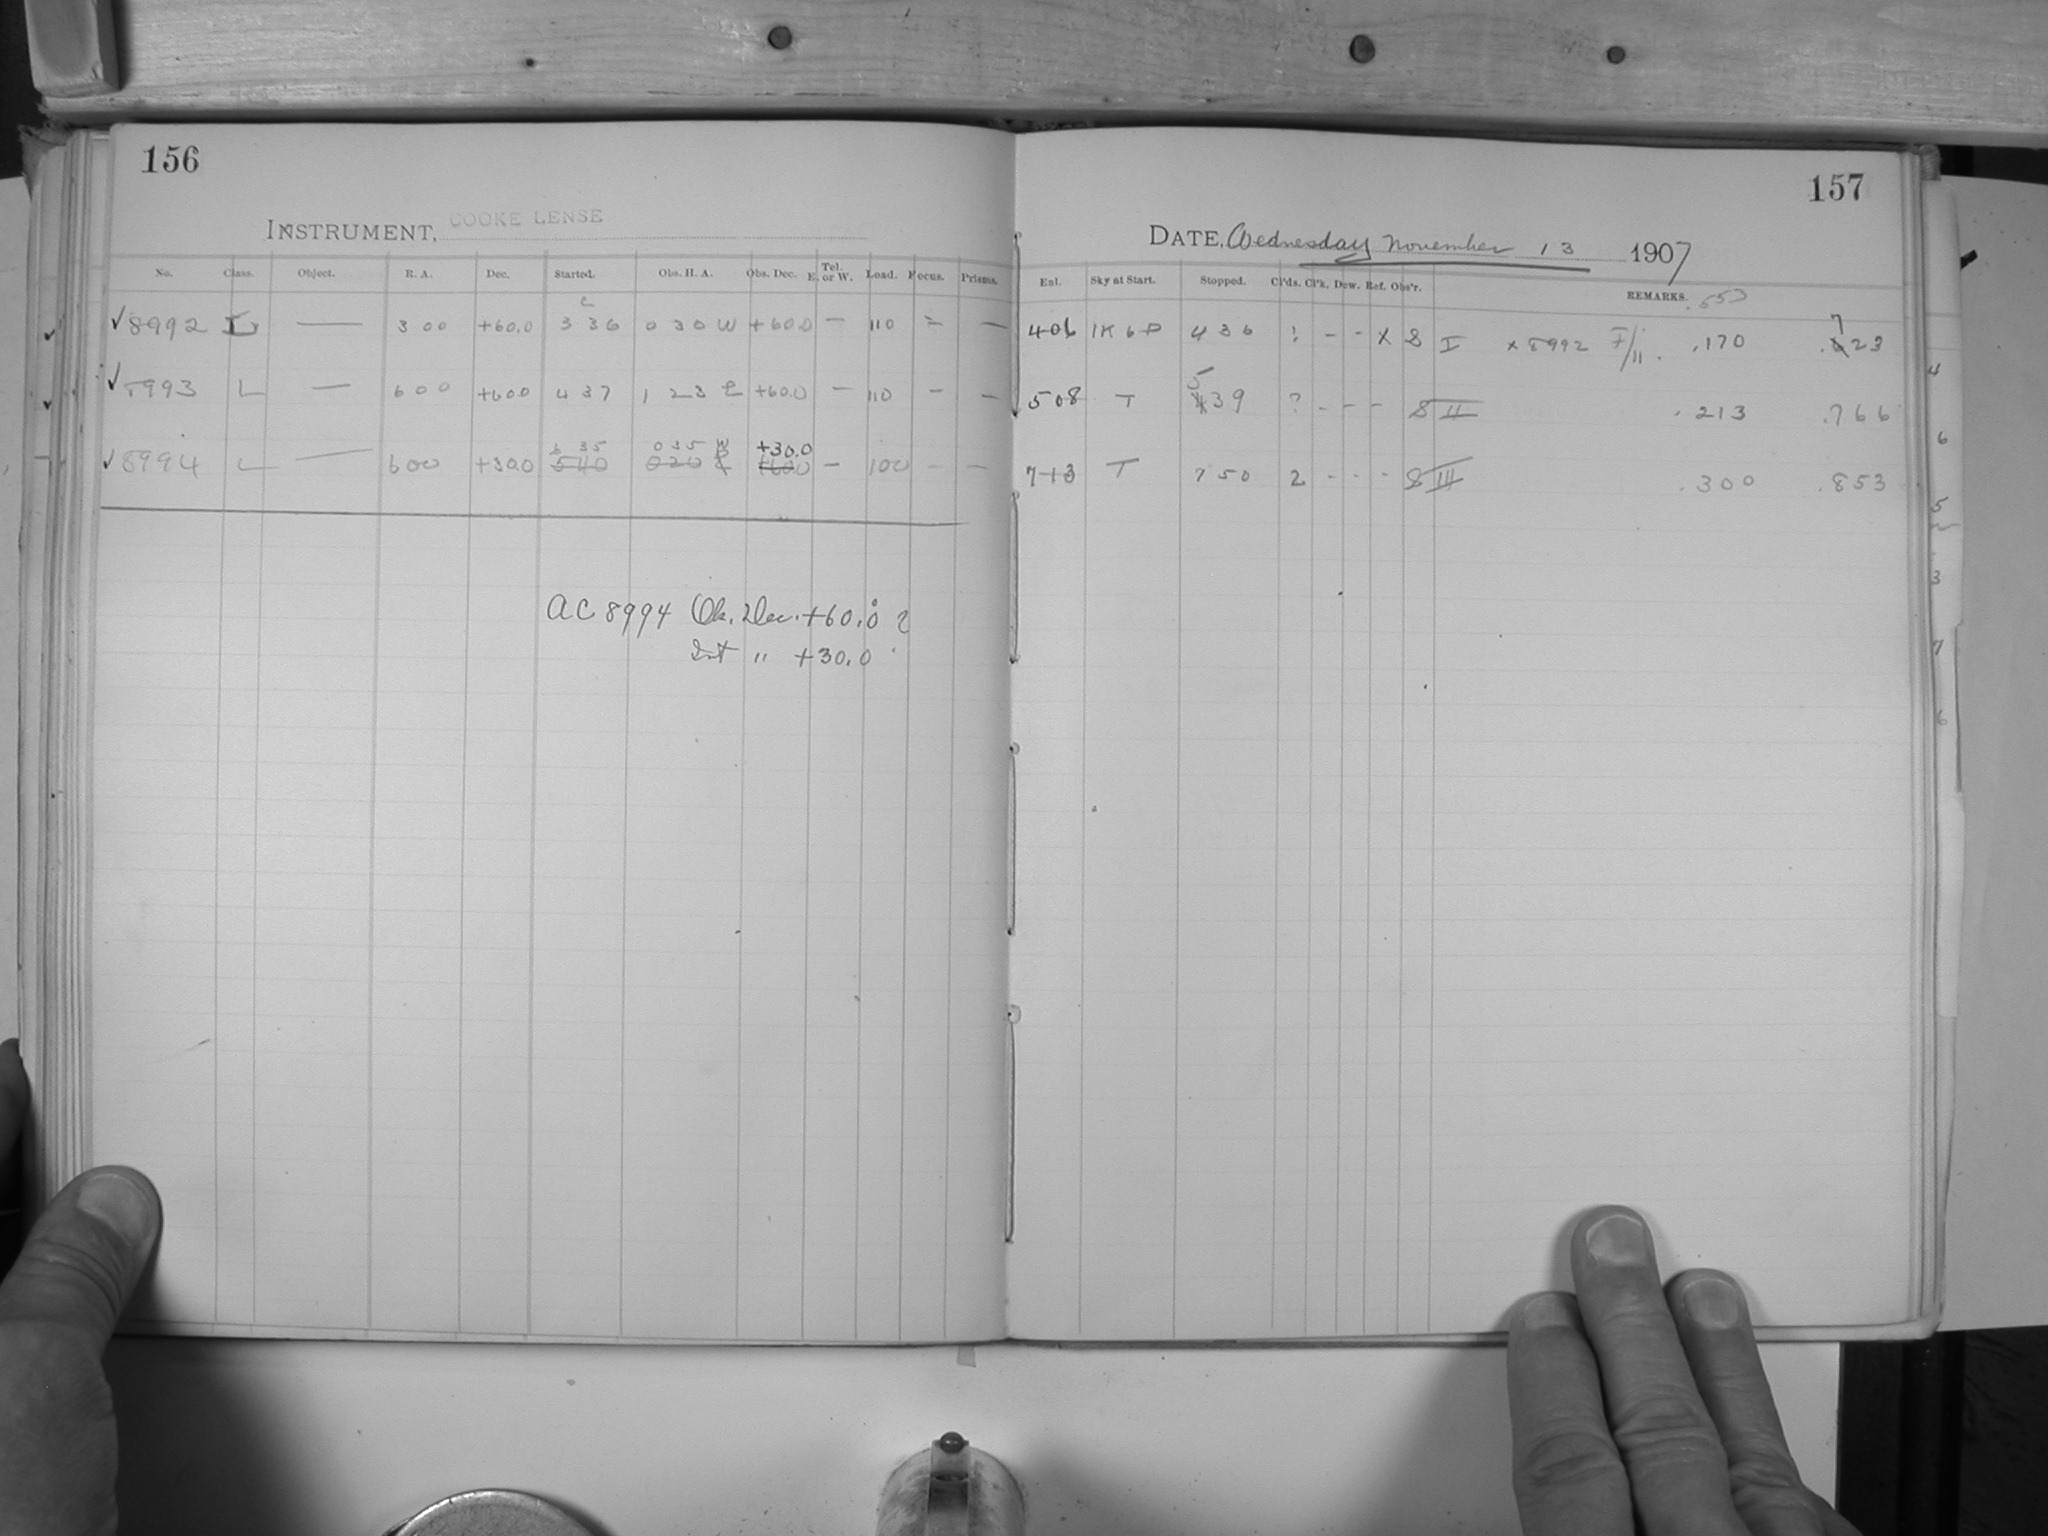 156
INSTRUMENT, COOKE LENSE
No. Class. Object. R. A. Dec. Started. Obs. H. A. Obs. Dec. Tel. E. or W. Load. Focus. Prisms.
✓8992 L — 3 00 +60.0 3 36 0 30 W +60.0 — 110 = —
✓8993 L — 6 00 +60.0 4 37 1 23 E +60.0 — 110 — —
6 35 0 35 W +30.0
✓8994 L — 6 00 +30.0 5 40 0 20 E +60.0 — 100 — —
AC 8994 Ob. Dec. +60.0 ?
Int " +30.0
157
DATE, Wednesday November 13 1907
Ent. Sky at Start. Stopped. Cl'ds. Cl'k. Dew. Ref. Obs'r. REMARKS. .553
406 1K6P 4 36 ? - - X S I x 8992 I/11. .170 .723
508 T 5 39 ? - - - S II .213 .766
713 T 7 50 2 - - - S III .300 .853